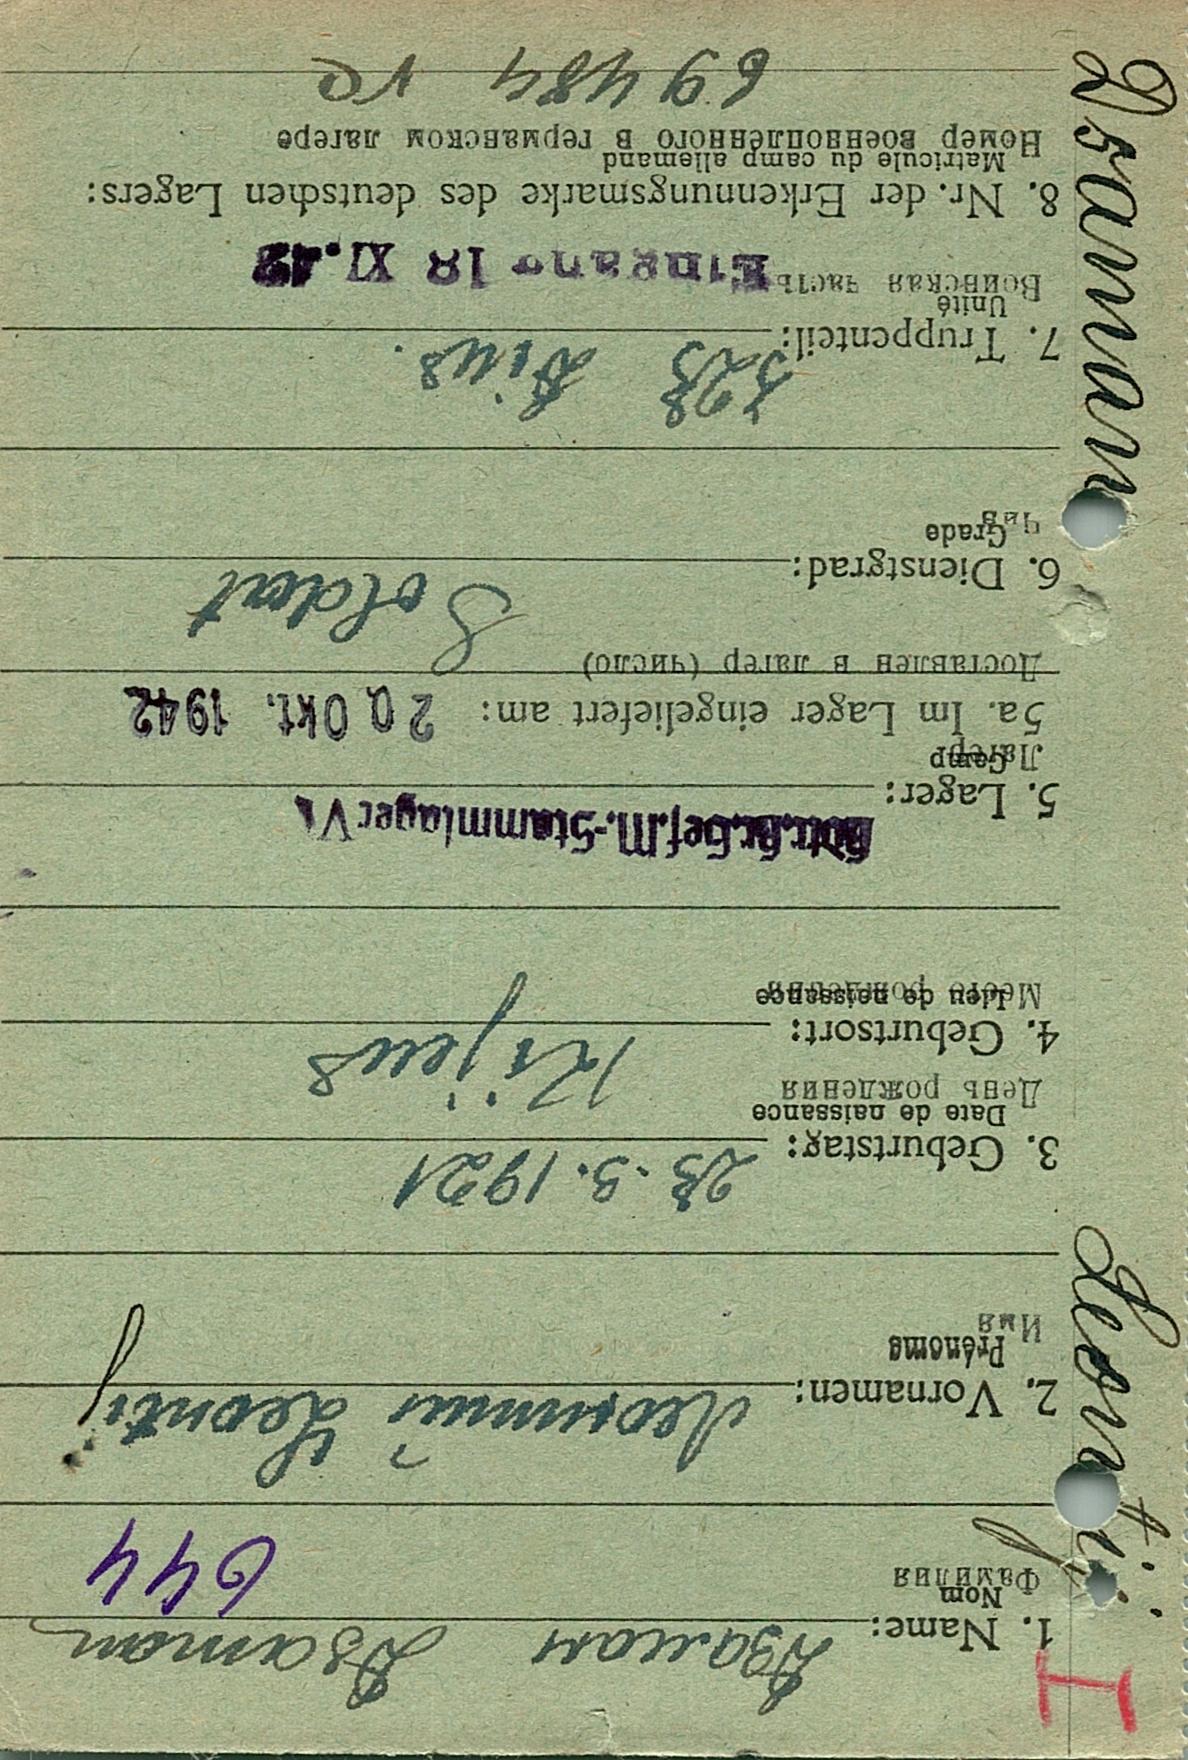 Dsaman Leontij
1. Name: Дзаман Dsaman
Nom
Фамилия
644
2. Vornamen: Леонтий Leontij
Prénoms
Имя
3. Geburtstag: 23.3.1921
Date de naissance
День рождения
4. Geburtsort: Kijew
Lieu de naissance
Место рождения
5. Lager: Kr.Gef.M.-Stammlager V
Camp
Лагерь
5a. Im Lager eingeliefert am: 20 Okt. 1942
Доставлен в лагер (число)
6. Dienstgrad: Soldat
Grade
Чин
7. Truppenteil: 323 Diws.
Unité
Воинская часть Eingang 18 XI.42
8. Nr. der Erkennungsmarke des deutschen Lagers:
Matricule du camp allemand
Номер военнопленного в германском лагере
69484 VC